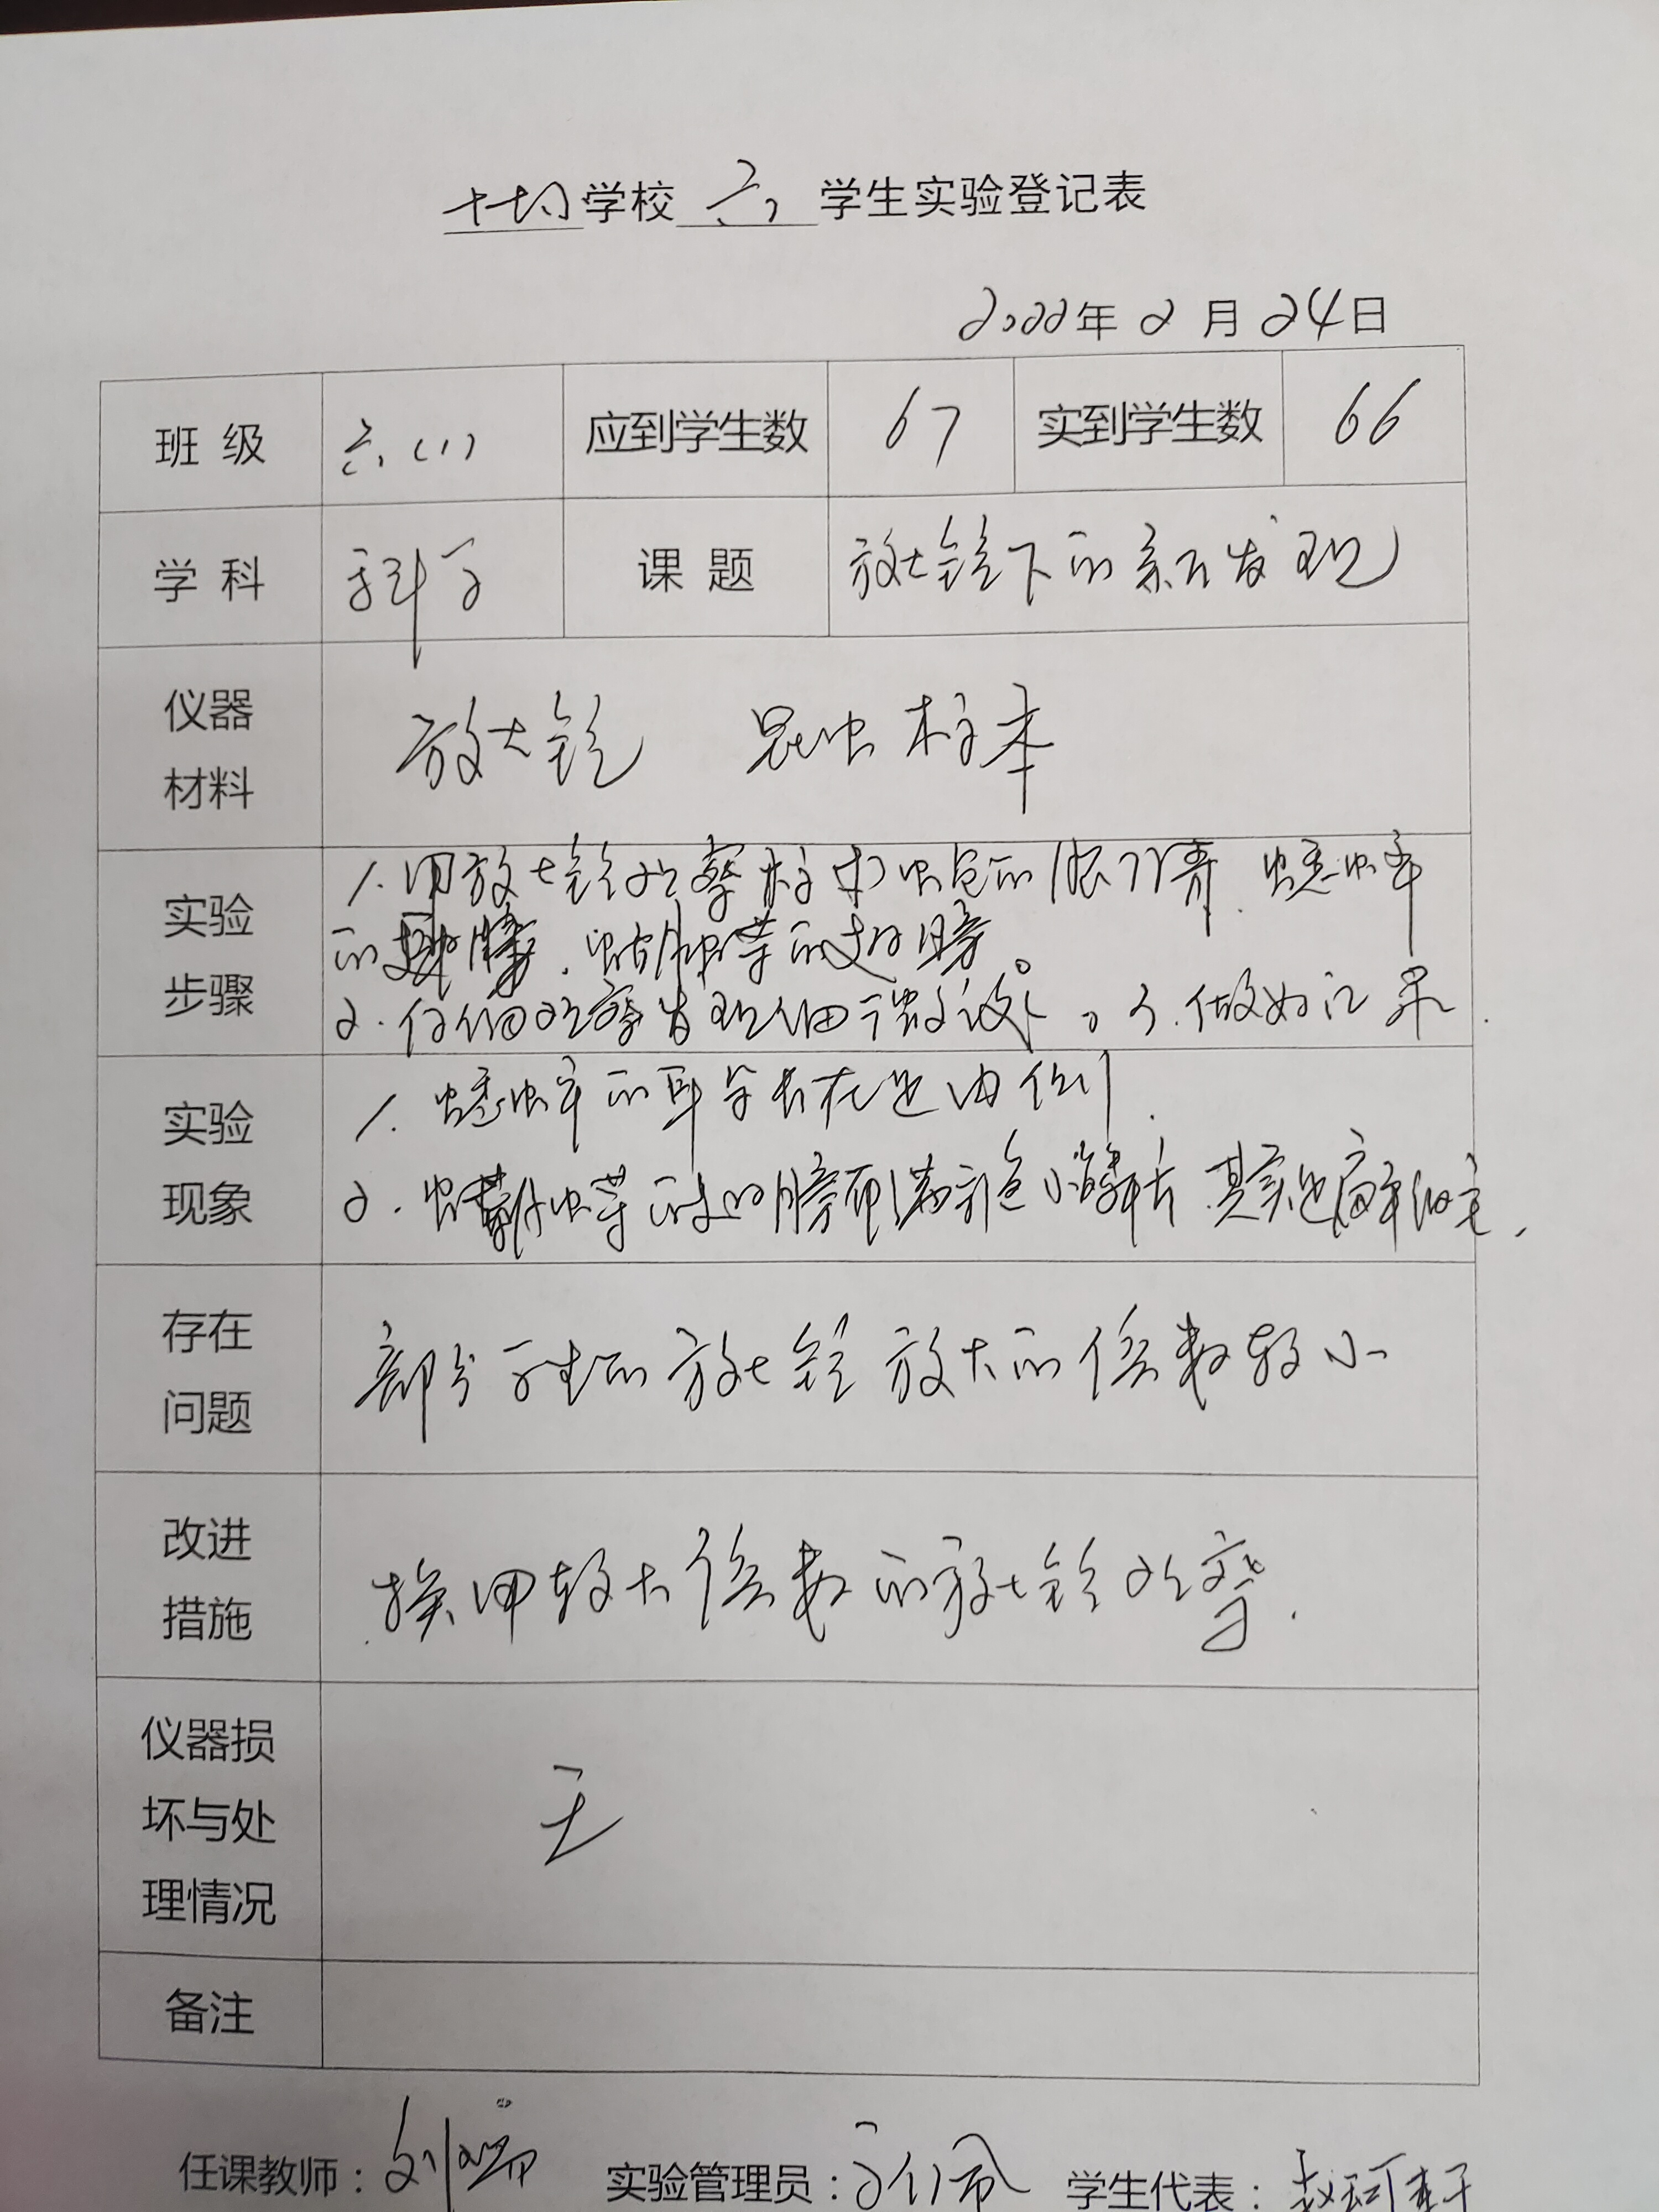 学校 六 学生实验登记表
2022年2月24日
班级 六(1) 应到学生数 67 实到学生数 66
学科 科学 课题 放大镜下的新发现
仪器 材料 放大镜 昆虫标本
实验 步骤 1.用放大镜观察标本 的 蟋蟀
的 、蝴蝶等的翅膀。
2.仔细观察发现细 。3.做好记录.
实验 现象 1.蟋蟀的耳朵长在足内侧.
2. 等 的 膀 彩色小鳞片 其实是扁平细毛.
存在 问题 部分学生的放大镜放大的倍数较小
改进 措施 换用较大倍数的放大镜观察.
仪器损坏与处理情况 无
备注
任课教师: 实验管理员: 学生代表: